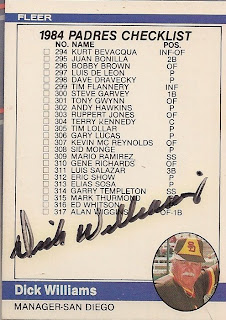 FLEER
1984 PADRES CHECKLIST
NO. NAME POS.
294 KURT BEVACQUA INF-OF
295 JUAN BONILLA 2B
296 BOBBY BROWN OF
297 LUIS DE LEON P
298 DAVE DRAVECKY P
299 TIM FLANNERY INF
300 STEVE GARVEY 1B
301 TONY GWYNN OF
302 ANDY HAWKINS P
303 RUPPERT JONES OF
304 TERRY KENNEDY C
305 TIM LOLLAR P
306 GARY LUCAS P
307 KEVIN MC REYNOLDS OF
308 SID MONGE P
309 MARIO RAMIREZ SS
310 GENE RICHARDS OF
311 LUIS SALAZAR 3B
312 ERIC SHOW P
313 ELIAS SOSA P
314 GARRY TEMPLETON SS
315 MARK THURMOND
316 ED WHITSON
317 ALAN WIGGINS OF-1B
Dick Williams
Dick Williams
MANAGER-SAN DIEGO